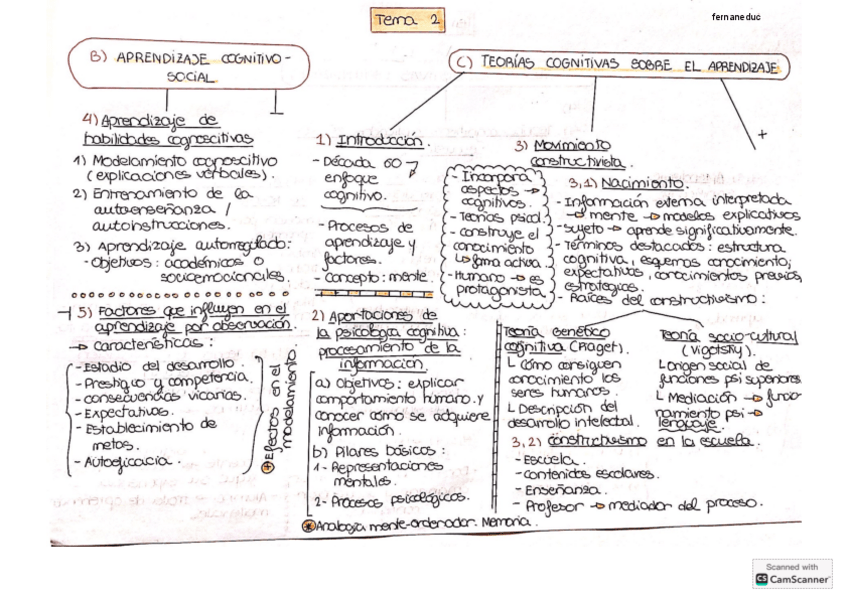 Tema 2
fernaneduc
B) APRENDIZAJE COGNITIVO-
SOCIAL
4) Aprendizaje de
habilidades cognoscitivas
1) Modelamiento cognoscitivo
(explicaciones verbales).
2) Entrenamiento de la
autoenseñanza /
autoinstrucciones.
3) Aprendizaje autorregulado:
- Objetivos: académicos o
socioemocionales.
5) Factores que influyen en el
aprendizaje por observación.
→ Características:
- Estadio del desarrollo.
- Prestigio y competencia.
- consecuencias vicarias.
- Expectativas.
- Establecimiento de
metas.
- Autoeficacia.
* Efectos en el
modelamiento
C) TEORÍAS COGNITIVAS SOBRE EL APRENDIZAJE
+
1) Introducción.
- Década 60
enfoque
cognitivo.
- Procesos de
aprendizaje y
factores.
- Concepto: mente.
2) Aportaciones de
la psicología cognitiva:
procesamiento de la
información.
a) Objetivos: explicar
comportamiento humano y
conocer cómo se adquiere
información.
b) Pilares básicos:
1- Representaciones
mentales.
2- Procesos psicológicos.
* Analogía mente-ordenador. Memoria.
3) Movimiento
constructivista.
- Incorpora
aspectos →
cognitivos.
- Teorías psicol.
- construye el
conocimiento
↳ forma activa.
- Humano → es
protagonista.
3,1) Nacimiento.
- Información externa interpretada
→ mente → modelos explicativos
- Sujeto → aprende significativamente.
- Términos destacados: estructura
cognitiva, esquemas conocimiento,
expectativas, conocimientos previos,
estrategias.
- Raíces del constructivismo:
Teoría genético
cognitiva (Piaget).
└ Cómo consiguen
conocimiento los
seres humanos.
└ Descripción del
desarrollo intelectual.
Teoría socio-cultural
(Vigotsky).
└ Origen social de
funciones psi superiores
└ Mediación → funcio-
namiento psi →
lenguaje.
3,2) constructivismo en la escuela.
- Escuela.
- contenidos escolares.
- Enseñanza.
- Profesor → mediador del proceso.
Scanned with
CS CamScanner